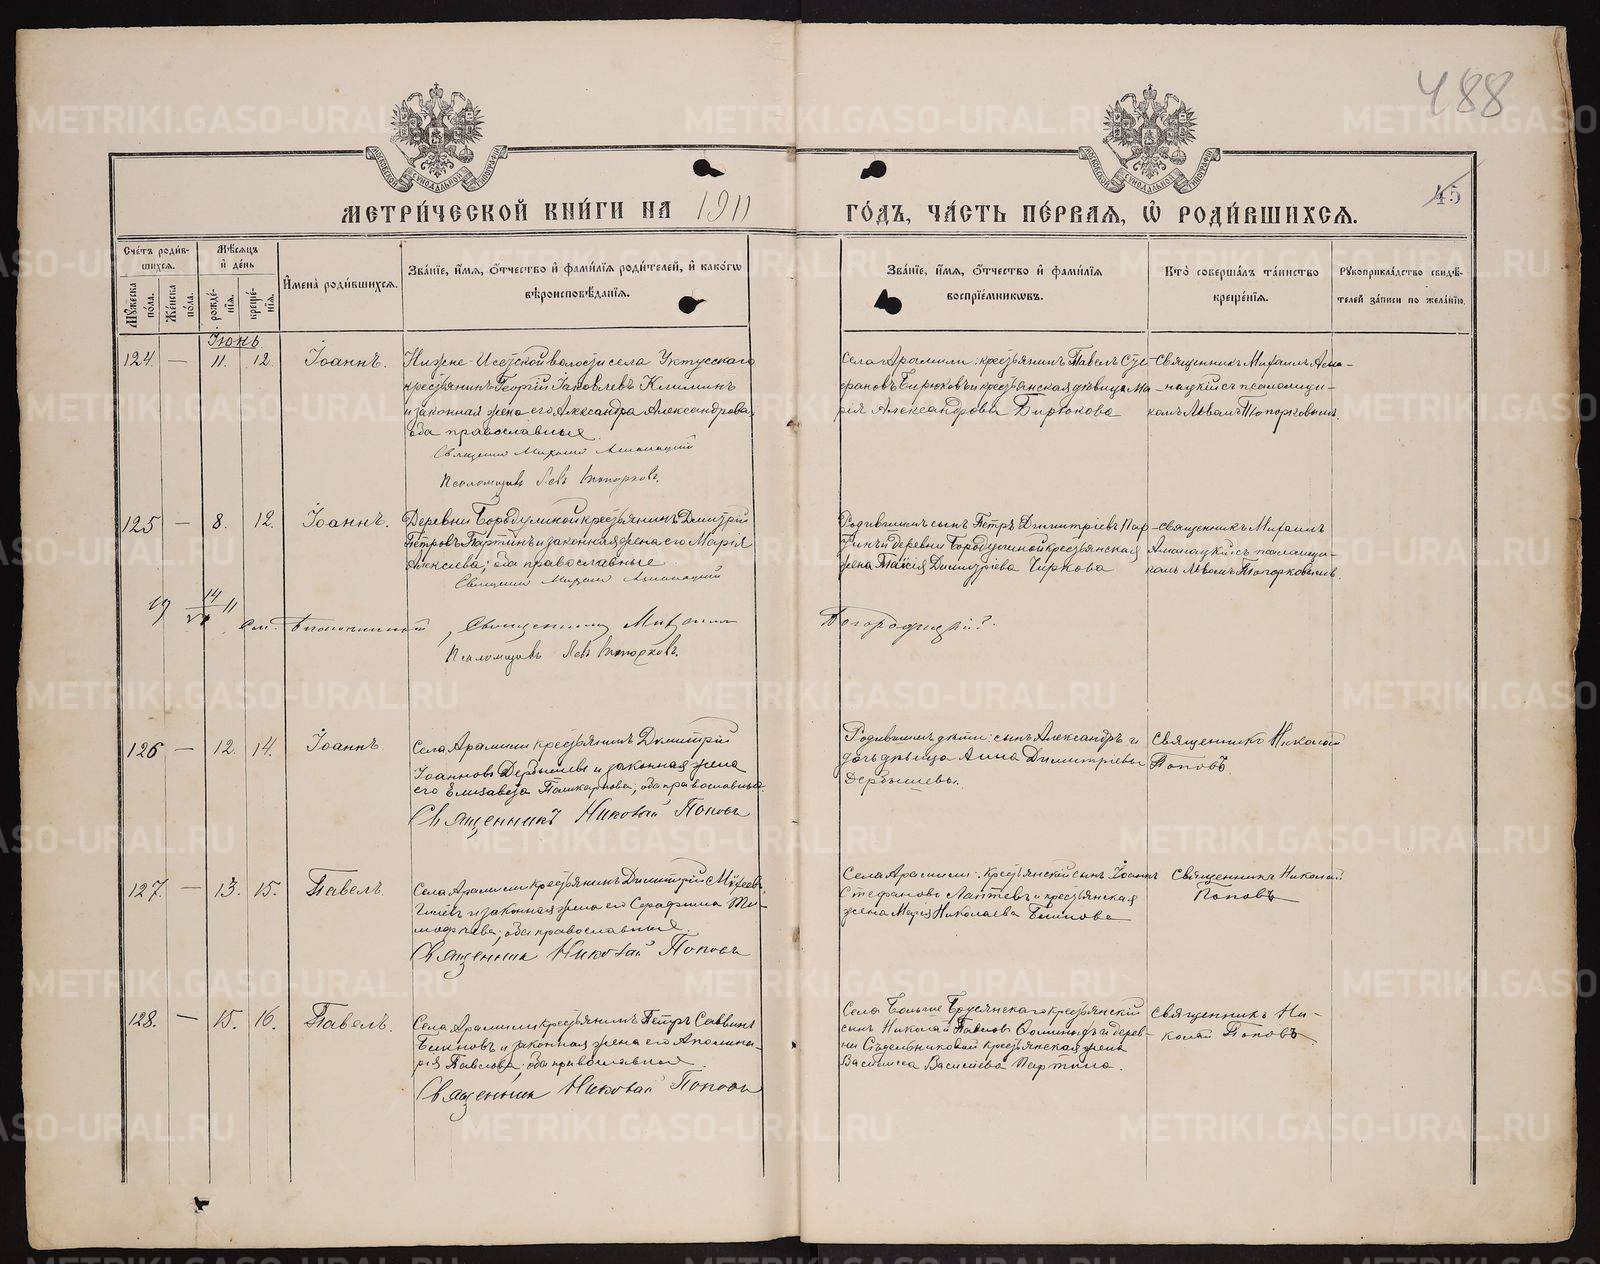 488
45
МЕТРИ́ЧЕСКОЙ КНИ́ГИ НА 1911 ГО́ДЪ, ЧА́СТЬ ПЕ́РВАЯ, Ѡ РОДИ́ВШИХСЯ.
Сче́тъ роди́в-
шихся.
Му́жеска по́ла.
Же́нска по́ла.
Мѣ́сяцъ и де́нь
рожде́-нія.
креще́-нія.
Имена̀ роди́вшихся.
Зва́нїе, и́мя, ѻ́тчество и фами́лїя роди́телей, и како́гѡ
вѣроисповѣ́данїя.
Зва́нїе, и́мя, ѻ́тчество и фами́лїя
воспрїе́мникѡвъ.
Кто̀ соверша́лъ та́инство
креще́нїя.
Рукоприкла́дство свидѣ́-
телей за́писи по жела́нїю.
Іюнь.
124 — 11. 12. Іоаннъ.
Нижне-Исетской волости села Уктусскаго
крестьянинъ Георгій Іаковлевъ Климинъ
и законная жена его Александра Александрова,
оба православные.
Священник Михаил
Псаломщикъ Левъ Топорковъ.
Села Арамили: крестьянинъ Павелъ Сте-
фановъ Бирюковъ и крестьянская дѣвица Ма-
рія Александрова Бирюкова
Священникъ Михаилъ
съ псаломщи-
комъ Львомъ Топорковымъ.
125 — 8. 12. Іоаннъ.
Деревни Бородулиной крестьянинъ Димитрій
Петровъ Партинъ и законная жена его Марія
Алексѣева; оба православные
Священник Михаил
Родившихъ сынъ Петръ Димитріевъ Пар-
тинъ и деревни Бородулиной крестьянская
жена Таисія Димитріева Чиркова
Священникъ Михаилъ
съ псаломщи-
комъ Львомъ Топорковымъ.
19 14/VI 11
Священникъ Михаилъ
Псаломщикъ Левъ Топорковъ.
126 — 12. 14. Іоаннъ.
Села Арамили крестьянинъ Димитрій
Іоанновъ Дербышевъ и законная жена
его Елизавета; оба православные
Священникъ Николай Поповъ
Родившихъ дѣти: сынъ Александръ и
дочь дѣвица Анна Димитріевы
Дербышевы.
Священникъ Николай
Поповъ
127. — 13. 15. Павелъ.
Села Арамили крестьянинъ Димитрій
и законная жена его Серафима Ти-
мофѣева; оба православные.
Священник Николай Поповъ
Села Арамили: крестьянскій сынъ Іоаннъ
Стефановъ Лаптевъ и крестьянская
жена Марія Николаева
Священникъ Николай
Поповъ
128. — 15. 16. Павелъ.
Села Арамили крестьянинъ Петръ Саввинъ
и законная жена его Аполлина-
рія Павлова; оба православные
Священник Николай Поповъ
Села Больше Брусянскаго крестьянскій
сынъ Николай Павловъ и дерев-
ни крестьянская жена
Василиса Васильева Партина.
Священникъ Ни-
колай Поповъ